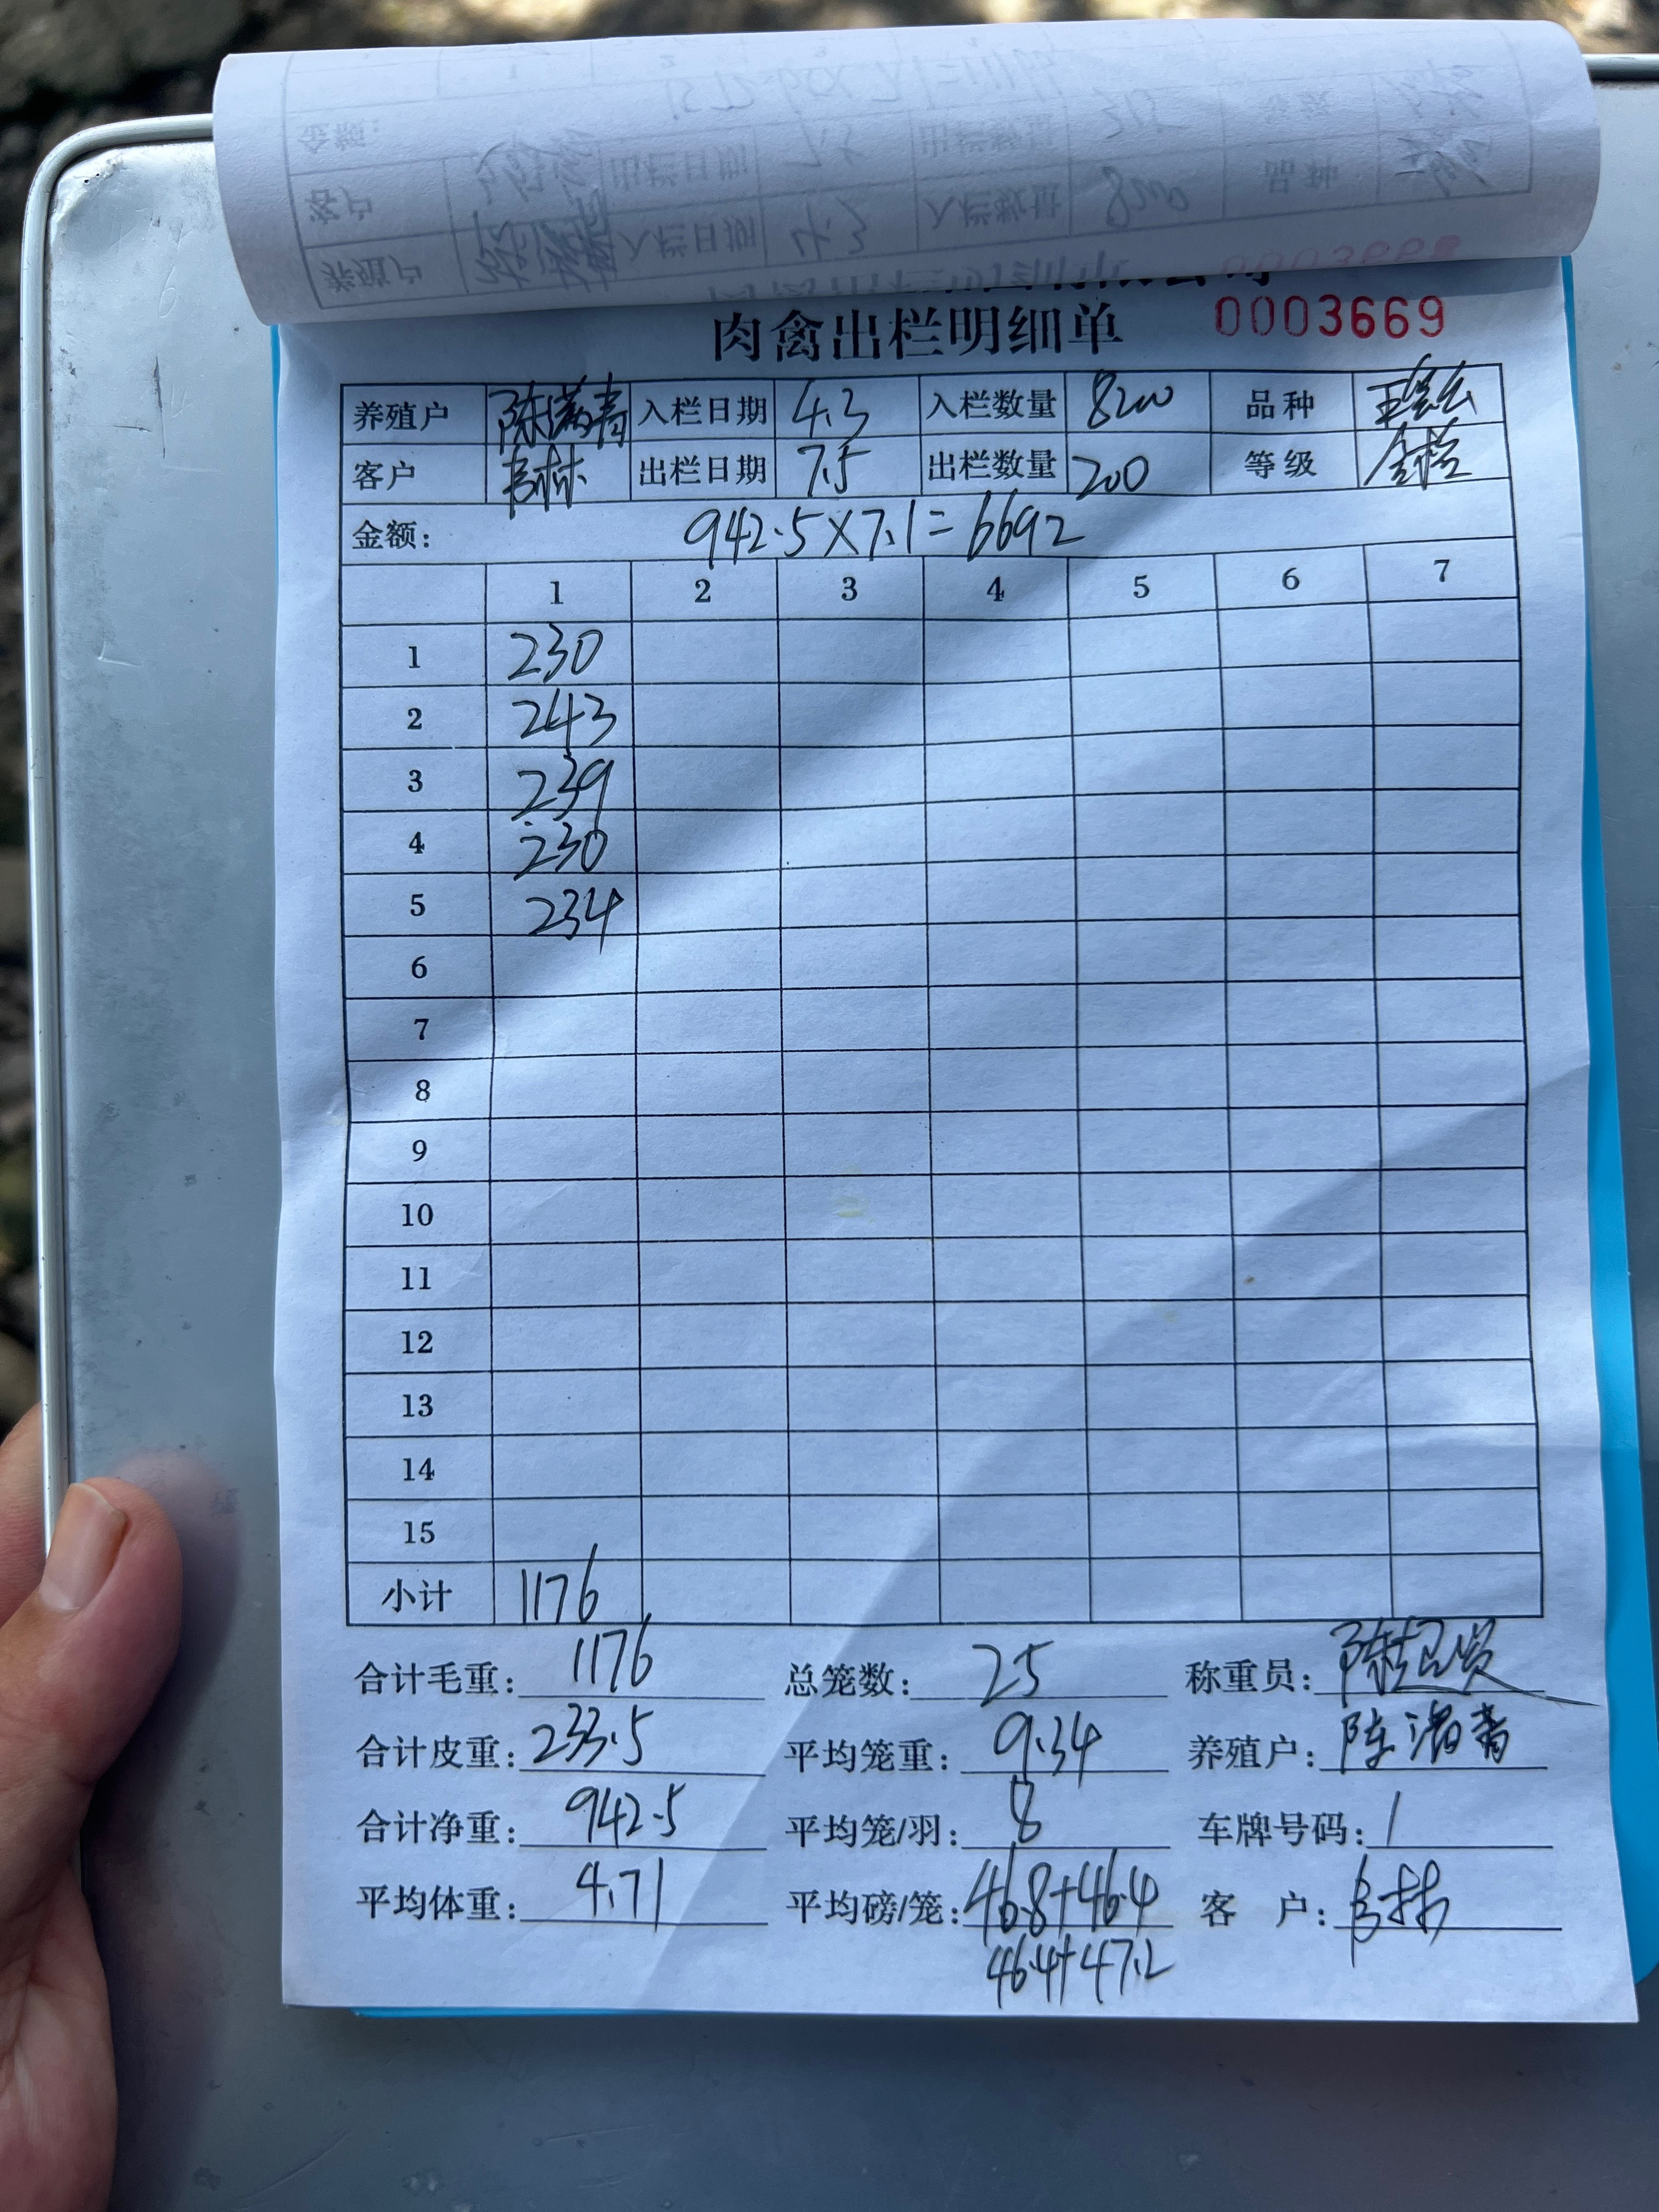 肉禽出栏明细单 0003669
养殖户 入栏日期 4.3 入栏数量 8200 品种
客户 出栏日期 7.5 出栏数量 200 等级 全栏
金额: 942.5×7.1=6692
1 2 3 4 5 6 7
1 230
2 243
3 239
4 230
5 234
6
7
8
9
10
11
12
13
14
15
小计 1176
合计毛重: 1176 总笼数: 25 称重员:
合计皮重: 233.5 平均笼重: 9.34 养殖户:
合计净重: 942.5 平均笼/羽: 8 车牌号码: 1
平均体重: 4.71 平均磅/笼: 46.8+46.4 客 户:
46.4+47.2